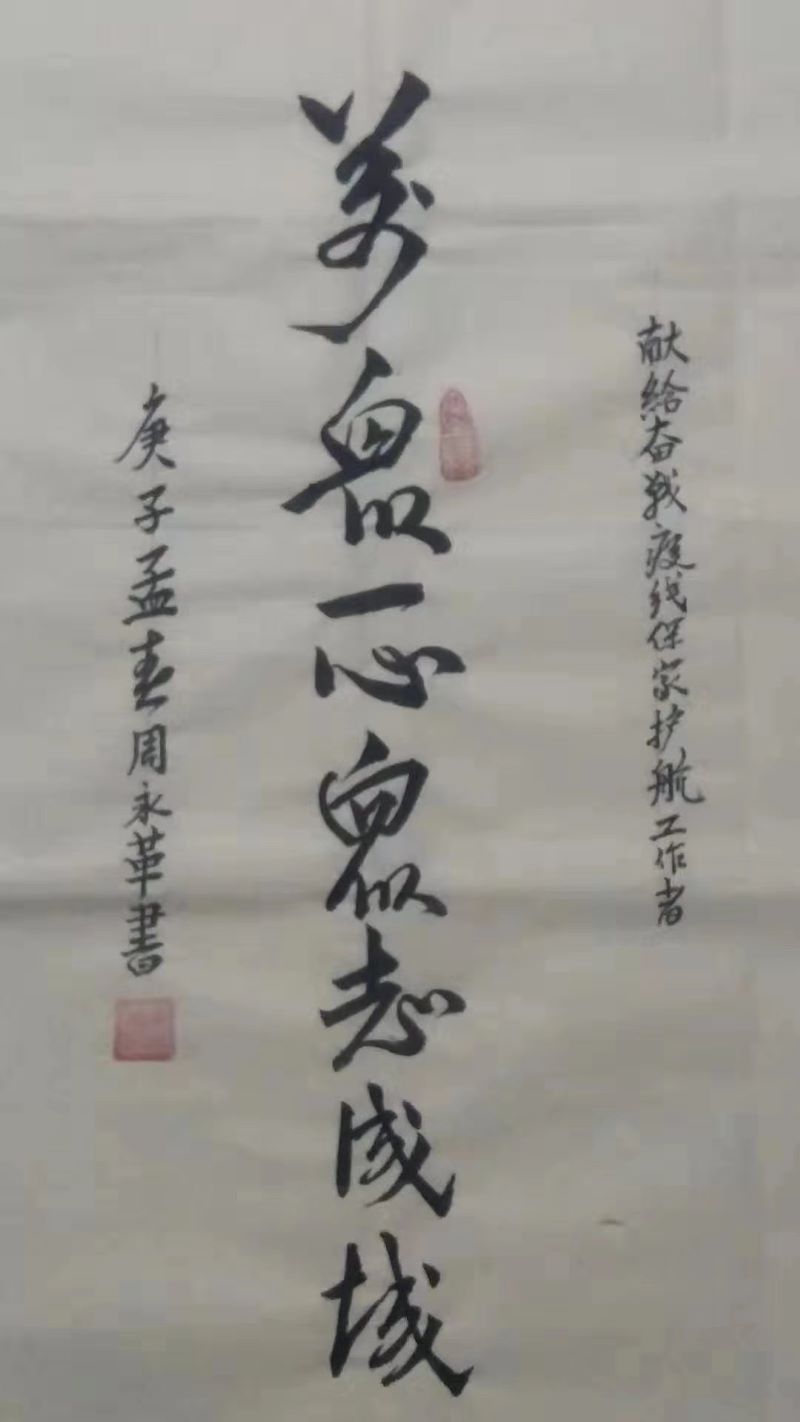 献给奋战疫线保家护航工作者
萬眾一心眾志成城
庚子孟春周永革書